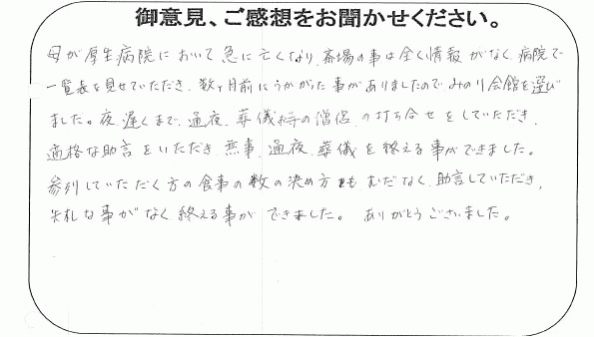 御意見、ご感想をお聞かせください。
母が厚生病院において急に亡くなり、斎場の事は全く情報がなく、病院で
一覧表を見せていただき、数ヶ月前にうかがった事がありましたのでみのり会館を選び
ました。夜遅くまで、通夜、葬儀の僧侶、の打ち合せをしていただき、
適格な助言をいただき、無事、通夜、葬儀を終える事ができました。
参列していただく方の食事の数の決め方もむだなく、助言していただき、
失礼な事がなく終える事ができました。ありがとうございました。